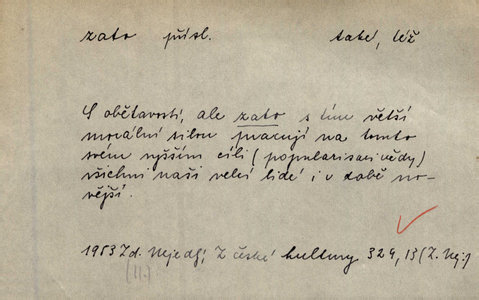 zato přísl. také, též
S obětavostí, ale zato s tím větší
morální silou pracují na tomto
svém vyšším cíli (popularisaci vědy)
všichni naši velcí lidé i v době no-
vější.
1953 Zd. Nejedlý, Z české kultury 329, 13 (Z. Nej.)